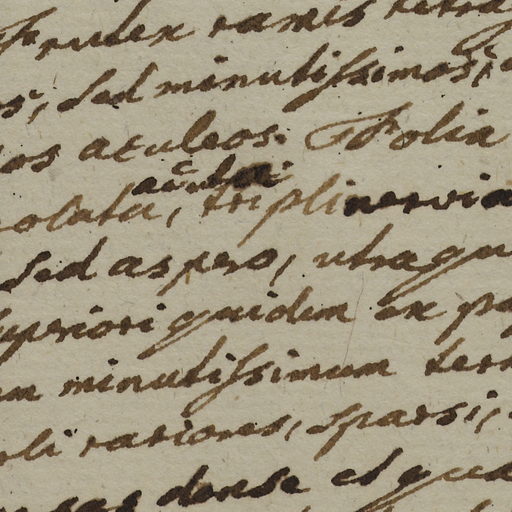 Frutex ramis tetrag
os, sed minutissimos,
os aculeos. Folia
acuta
olata, triplinervia
sed aspero, utraqu
superiori quidem ex pa
em minutissimum ter
oli rariores, sparsi,
dense et qua